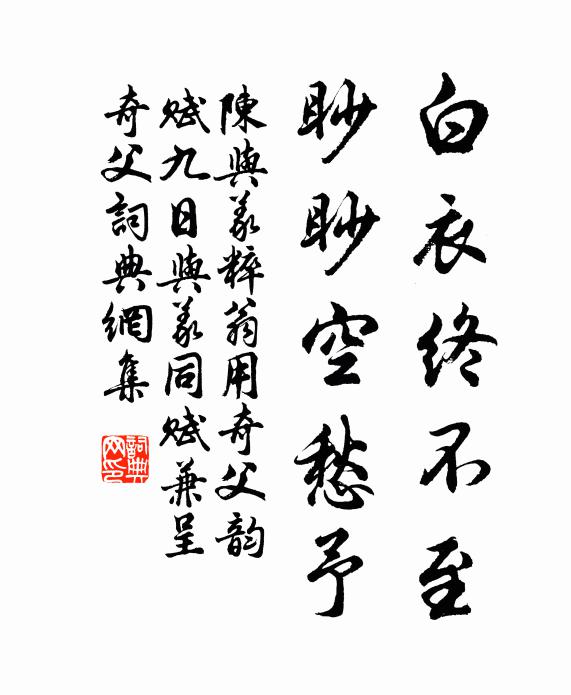 白衣終不至
眇眇空愁予
陳與義粹翁用奇父韵
賦九日與義同賦兼呈
奇父詞典網集
詞典网印